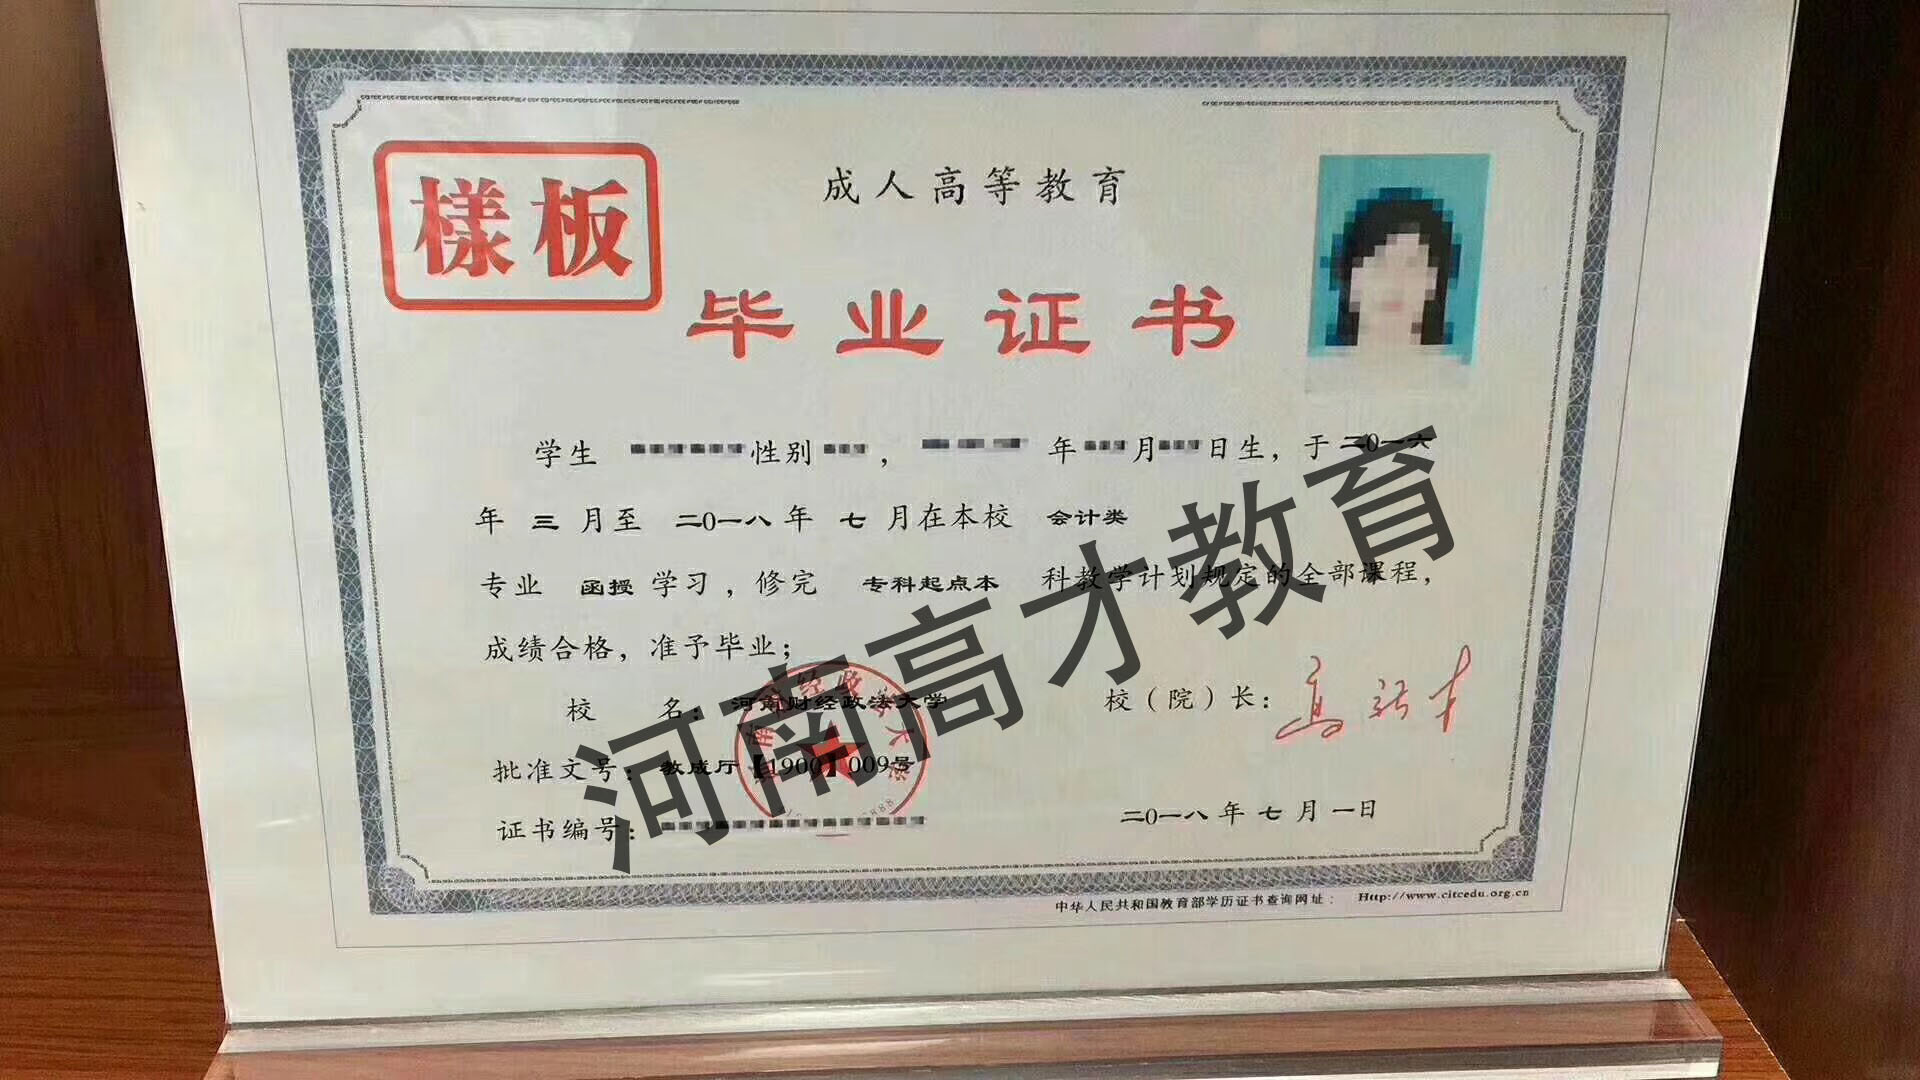 成人高等教育
樣板
毕业证书
学生 性别 , 年 月 日生, 于 二〇一六
年 三 月至 二〇一八 年 七 月在本校 会计类
专业 函授 学习, 修完 专科起点本 科教学计划规定的全部课程,
成绩合格, 准予毕业;
校 名: 河南财经政法大学
校(院)长:
批准文号: 教成厅【1900】009号
证书编号:
二〇一八 年 七 月 一日
中华人民共和国教育部学历证书查询网址: Http://www.citcedu.org.cn
河南高才教育